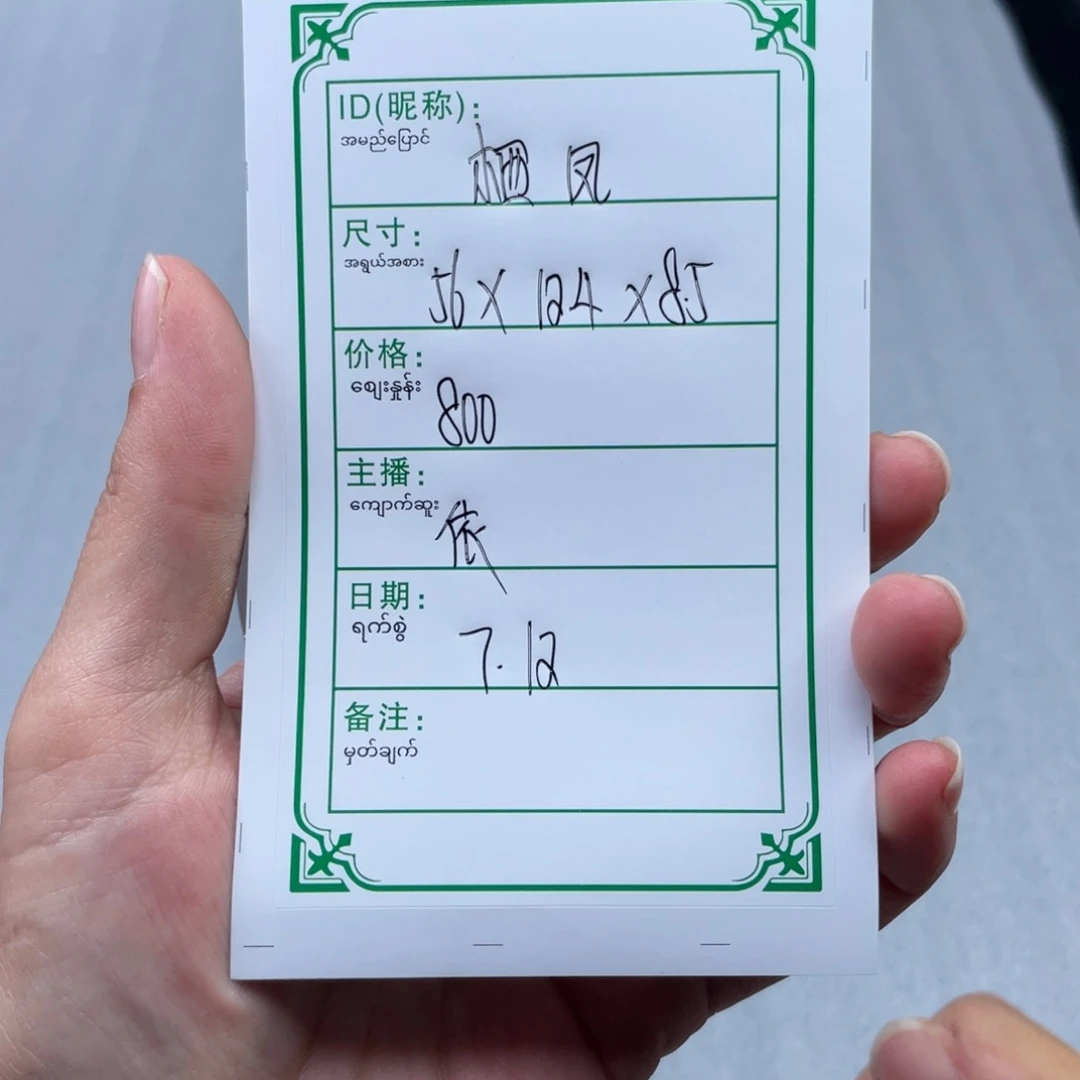 ID(昵称):
အမည်ပြောင်
栖凤
尺寸:
အရွယ်အစား
56 x 12.4 x 8.5
价格:
ဈေးနှုန်း
800
主播:
ကျောက်ဆူး
依
日期:
ရက်စွဲ
7.12
备注:
မှတ်ချက်